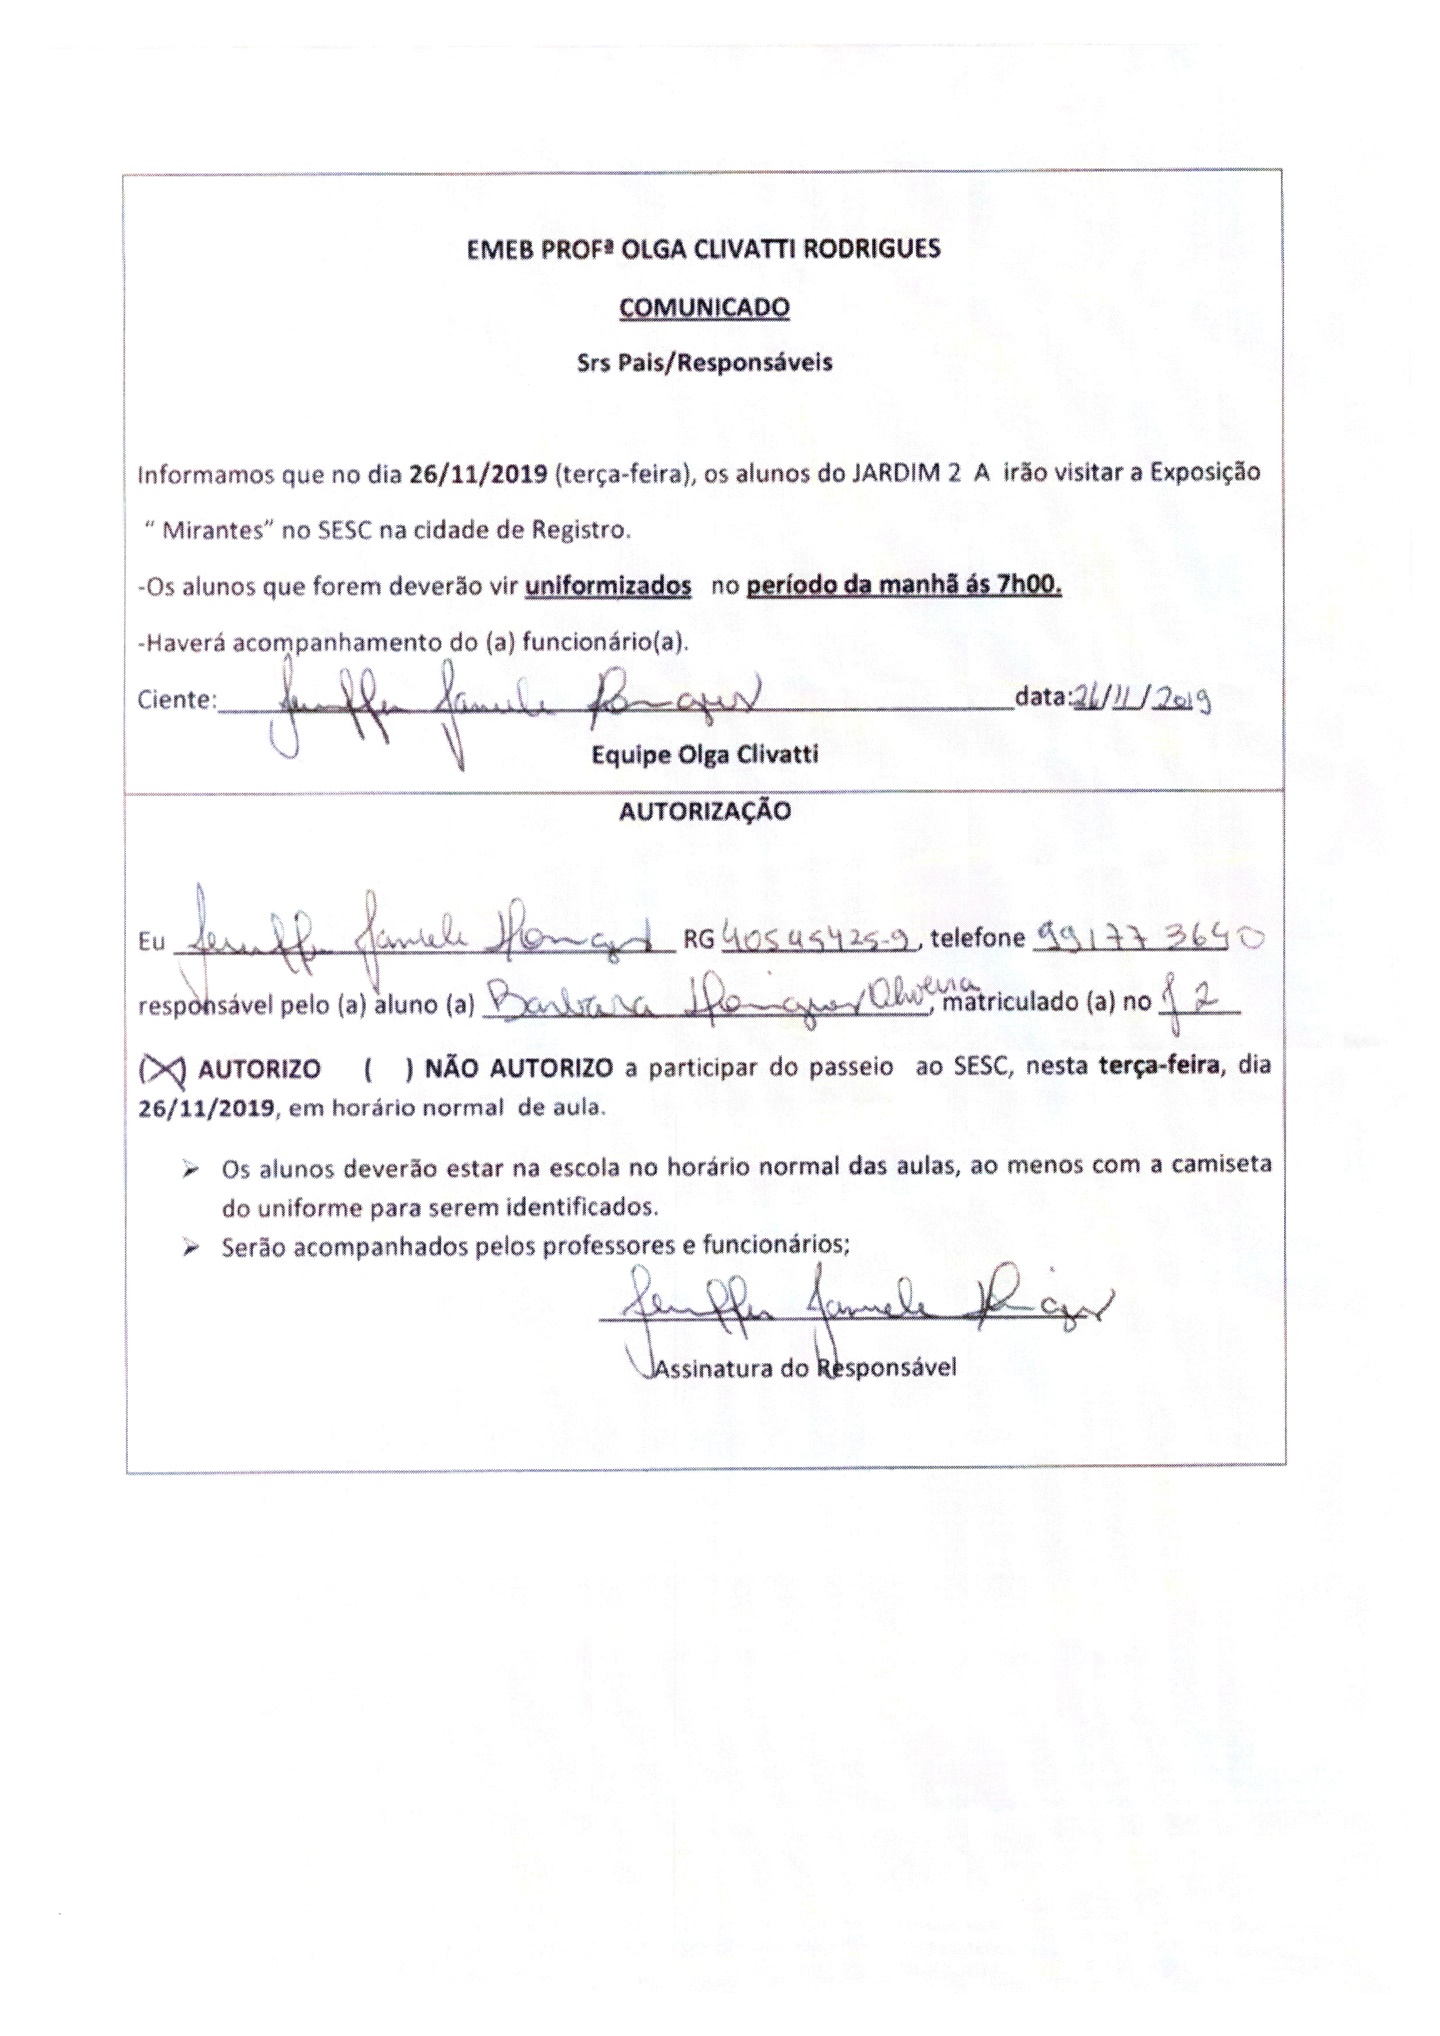 EMEB PROFª OLGA CLIVATTI RODRIGUES
COMUNICADO
Srs Pais/Responsáveis
Informamos que no dia 26/11/2019 (terça-feira), os alunos do JARDIM 2 A irão visitar a Exposição
“ Mirantes” no SESC na cidade de Registro.
-Os alunos que forem deverão vir uniformizados no período da manhã ás 7h00.
-Haverá acompanhamento do (a) funcionário(a).
Ciente: data:26/11/2019
Equipe Olga Clivatti
AUTORIZAÇÃO
Eu RG 40545425-9, telefone 99177 3640
responsável pelo (a) aluno (a) Barbara Oliveira, matriculado (a) no J 2
(X) AUTORIZO ( ) NÃO AUTORIZO a participar do passeio ao SESC, nesta terça-feira, dia
26/11/2019, em horário normal de aula.
➢ Os alunos deverão estar na escola no horário normal das aulas, ao menos com a camiseta
do uniforme para serem identificados.
➢ Serão acompanhados pelos professores e funcionários;
Assinatura do Responsável